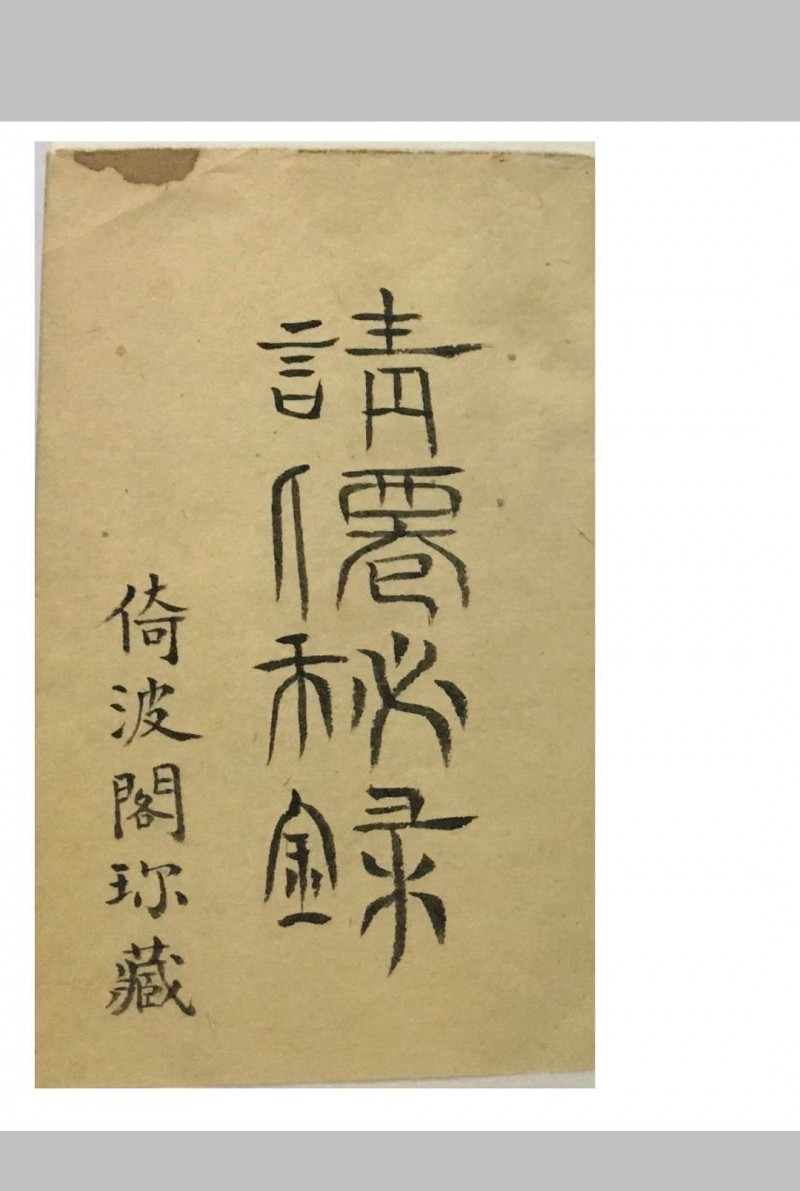 請僊秘錄
倚波閣珎藏